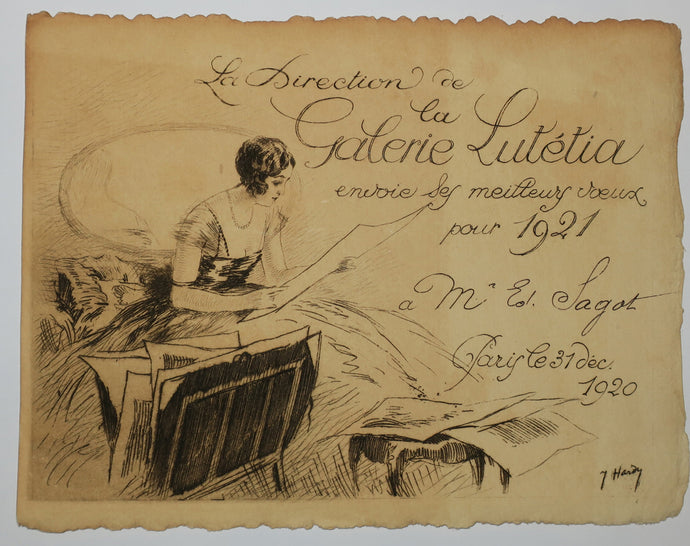 La Direction de
la
Galerie Lutétia
envoie ses meilleurs vœux
pour 1921
a Mr Ed. Sagot
Paris le 31 déc.
1920
J Hardy